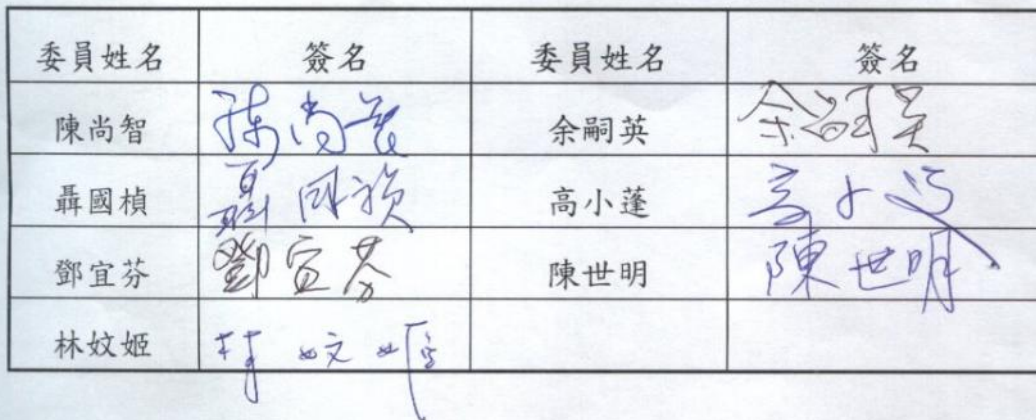 委員姓名 簽名 委員姓名 簽名
陳尚智 陳尚智 余嗣英 余嗣英
聶國楨 聶國禎 高小蓬 高小蓬
鄧宜芬 鄧宜芬 陳世明 陳世明
林妏姬 林妏姬